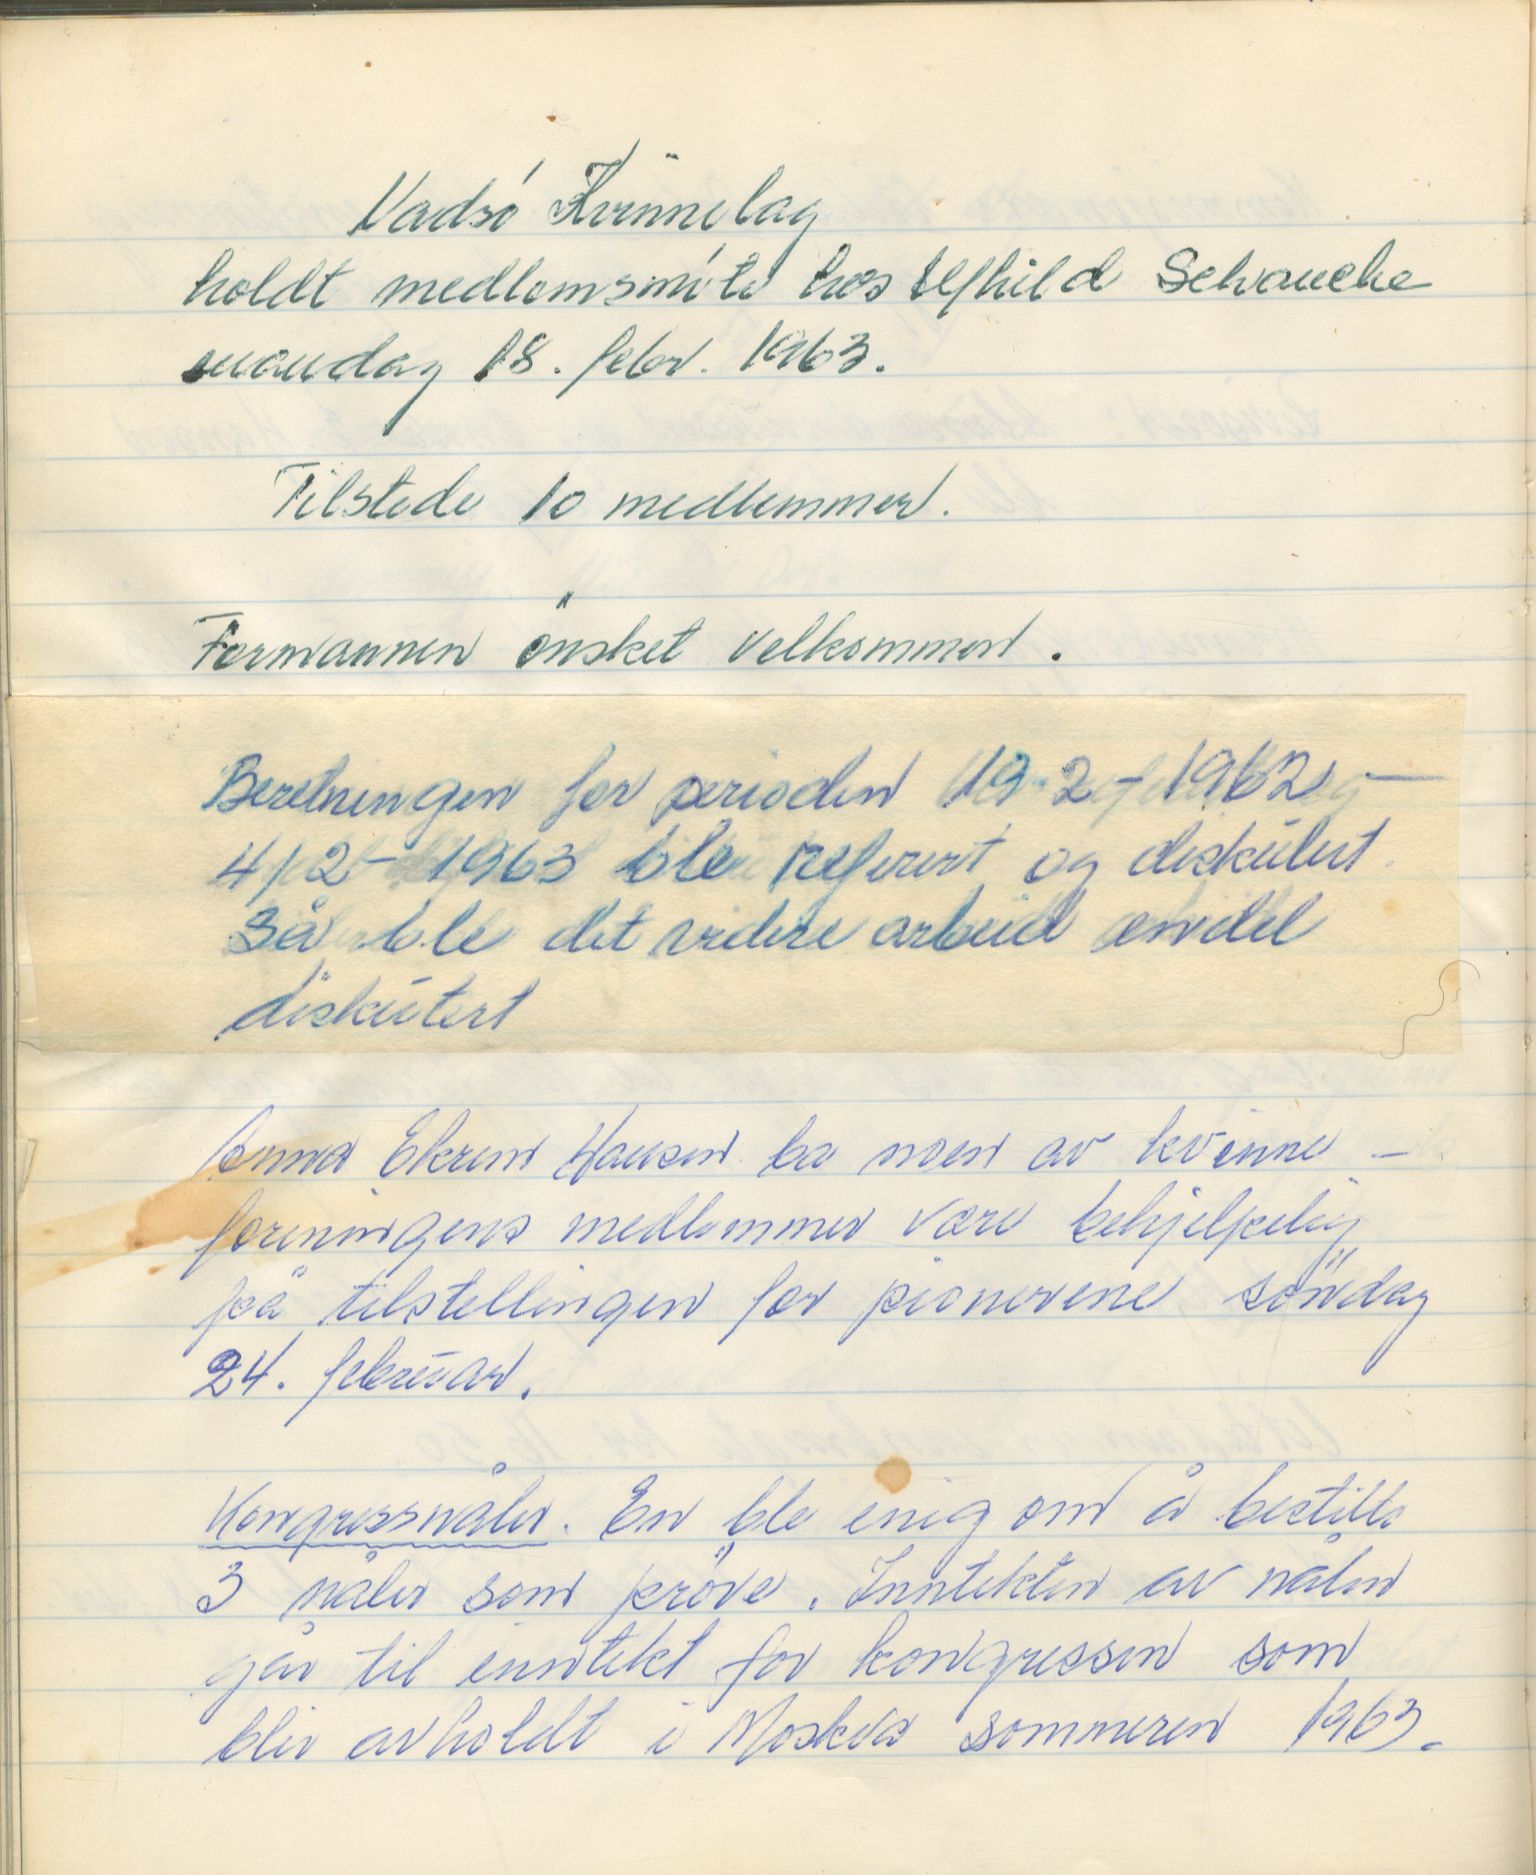 Vadsö Kvinnelag
holdt medlemsmöte hos Alfhild Schancke
mandag 18. febr. 1963.
Tilstede 10 medlemmer.
Formannen önsket velkommen.
Beretningen for perioden 19-2-1962 -
4/2-1963 ble referert og diskutert.
Så ble det videre arbeid endel
diskutert
Anna Ekren Hansen ba noen av kvinne -
foreningens medlemmer være behjelpelig
på tilstellingen for pionerene söndag
24. februar.
Kongressnåler. En ble enig om å bestille
3 nåler som pröve. Inntekten av nålen
går til inntekt for kongressen som
blir avholdt i Moskva sommeren 1963.